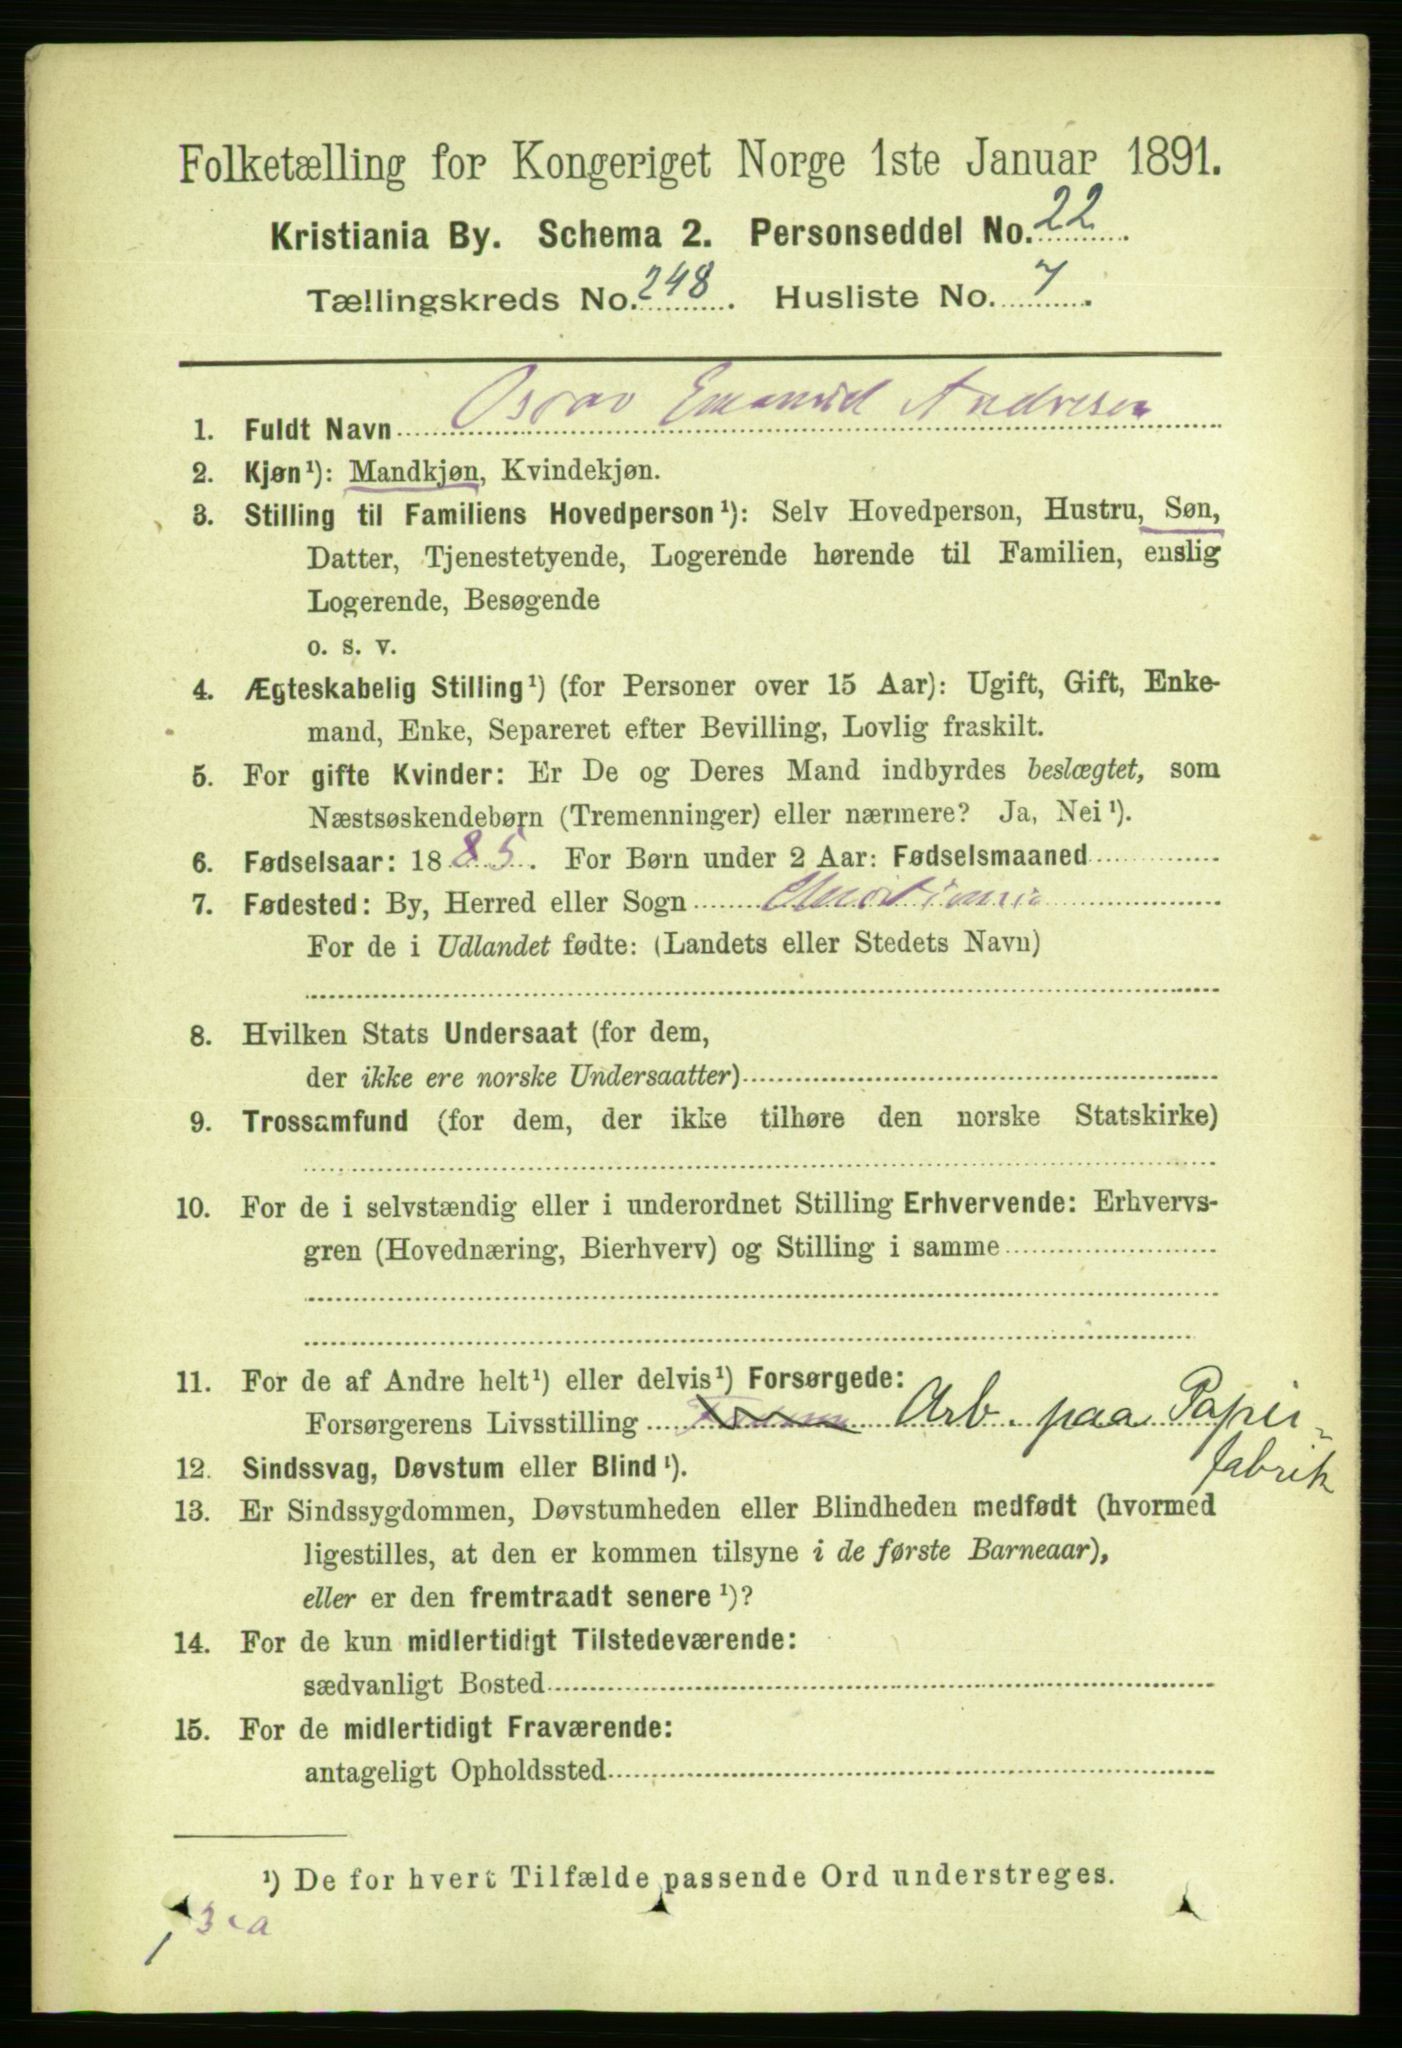 Folketælling for Kongeriget Norge 1ste Januar 1891.
Kristiania By. Schema 2. Personseddel No. 22
Tællingskreds No. 248. Husliste No. 7.
1. Fuldt Navn Oscar Emanuel Andresen
2. Kjøn¹): Mandkjøn, Kvindekjøn.
3. Stilling til Familiens Hovedperson¹): Selv Hovedperson, Hustru, Søn,
Datter, Tjenestetyende, Logerende hørende til Familien, enslig
Logerende, Besøgende
o. s. v.
4. Ægteskabelig Stilling¹) (for Personer over 15 Aar): Ugift, Gift, Enke-
mand, Enke, Separeret efter Bevilling, Lovlig fraskilt.
5. For gifte Kvinder: Er De og Deres Mand indbyrdes beslægtet, som
Næstsøskendebørn (Tremenninger) eller nærmere? Ja, Nei¹).
6. Fødselsaar: 1885. For Børn under 2 Aar: Fødselsmaaned
7. Fødested: By, Herred eller Sogn Christiania
For de i Udlandet fødte: (Landets eller Stedets Navn)
8. Hvilken Stats Undersaat (for dem,
der ikke ere norske Undersaatter)
9. Trossamfund (for dem, der ikke tilhøre den norske Statskirke)
10. For de i selvstændig eller i underordnet Stilling Erhvervende: Erhvervs-
gren (Hovednæring, Bierhverv) og Stilling i samme
11. For de af Andre helt¹) eller delvis¹) Forsørgede:
Forsørgerens Livsstilling Arb. paa Papir-
fabrik
12. Sindssvag, Døvstum eller Blind¹).
13. Er Sindssygdommen, Døvstumheden eller Blindheden medfødt (hvormed
ligestilles, at den er kommen tilsyne i de første Barneaar),
eller er den fremtraadt senere¹)?
14. For de kun midlertidigt Tilstedeværende:
sædvanligt Bosted
15. For de midlertidigt Fraværende:
antageligt Opholdssted
¹) De for hvert Tilfælde passende Ord understreges.